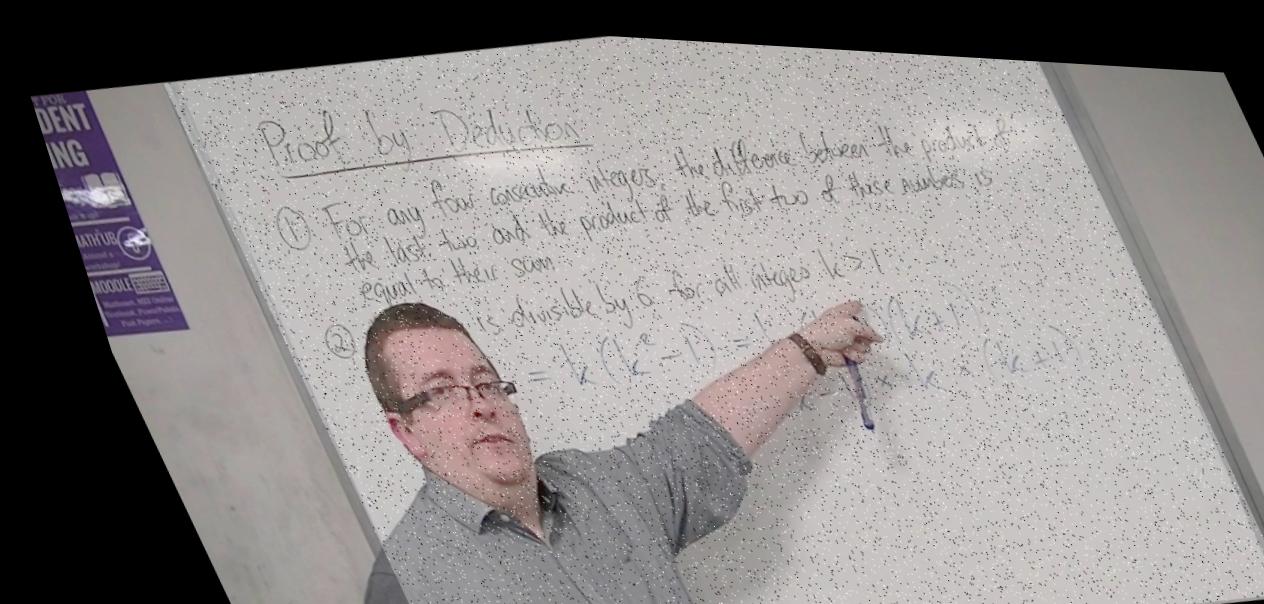 DENT
ING
MATH'UB
MOODLE
Past Papers
Proof by Deduction
① For any four consecutive integers, the difference between the product of
the last two, and the product of the first two of these numbers is
equal to their sum
② is divisible by 6 for all integers k > 1
= k(k² - 1) =
(k+1)
x k x (k+1)